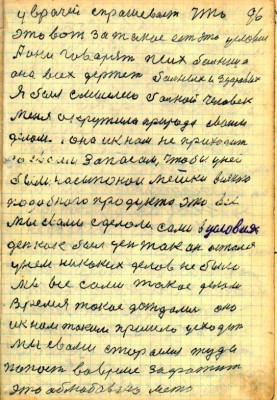 у врачей спрашевает что 96
это вот за такие есть это условия
А они говарят их болница
она всех держет болных и здоровых
Я был смыслено болной человек
меня окружила природа своим
делом. она и к нам не приходит
запасом, чтобы у ней
были мешки
подобного продукта это всё
Мы с вами сделоли сами в условиях
ден как был ден так он остался
у нем никаких делов не было
Мы все сами такое делали
Время такое дождали оно
и к нам таким пришло уходит
Мы с вами старались туды
попаст вовремя захватить
это облюбовано место